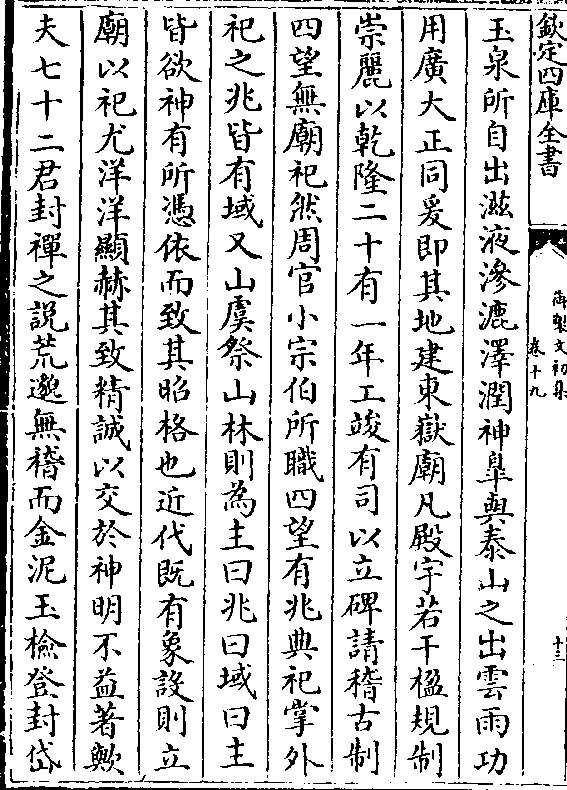 欽定四庫全書
御製文初集
卷十九
十三
玉泉所自出滋液滲漉澤潤神臯與泰山之出雲雨功
用廣大正同爰即其地建東嶽廟凡殿宇若干楹規制
崇麗以乾隆二十有一年工竣有司以立碑請稽古制
四望無廟祀然周官小宗伯所職四望有兆典祀掌外
祀之兆皆有域又山虞祭山林則為主曰兆曰域曰主
皆欲神有所憑依而致其昭格也近代既有象設則立
廟以祀尤洋洋顯赫其致精誠以交於神明不益著歟
夫七十二君封禪之説荒邈無稽而金泥玉檢登封岱